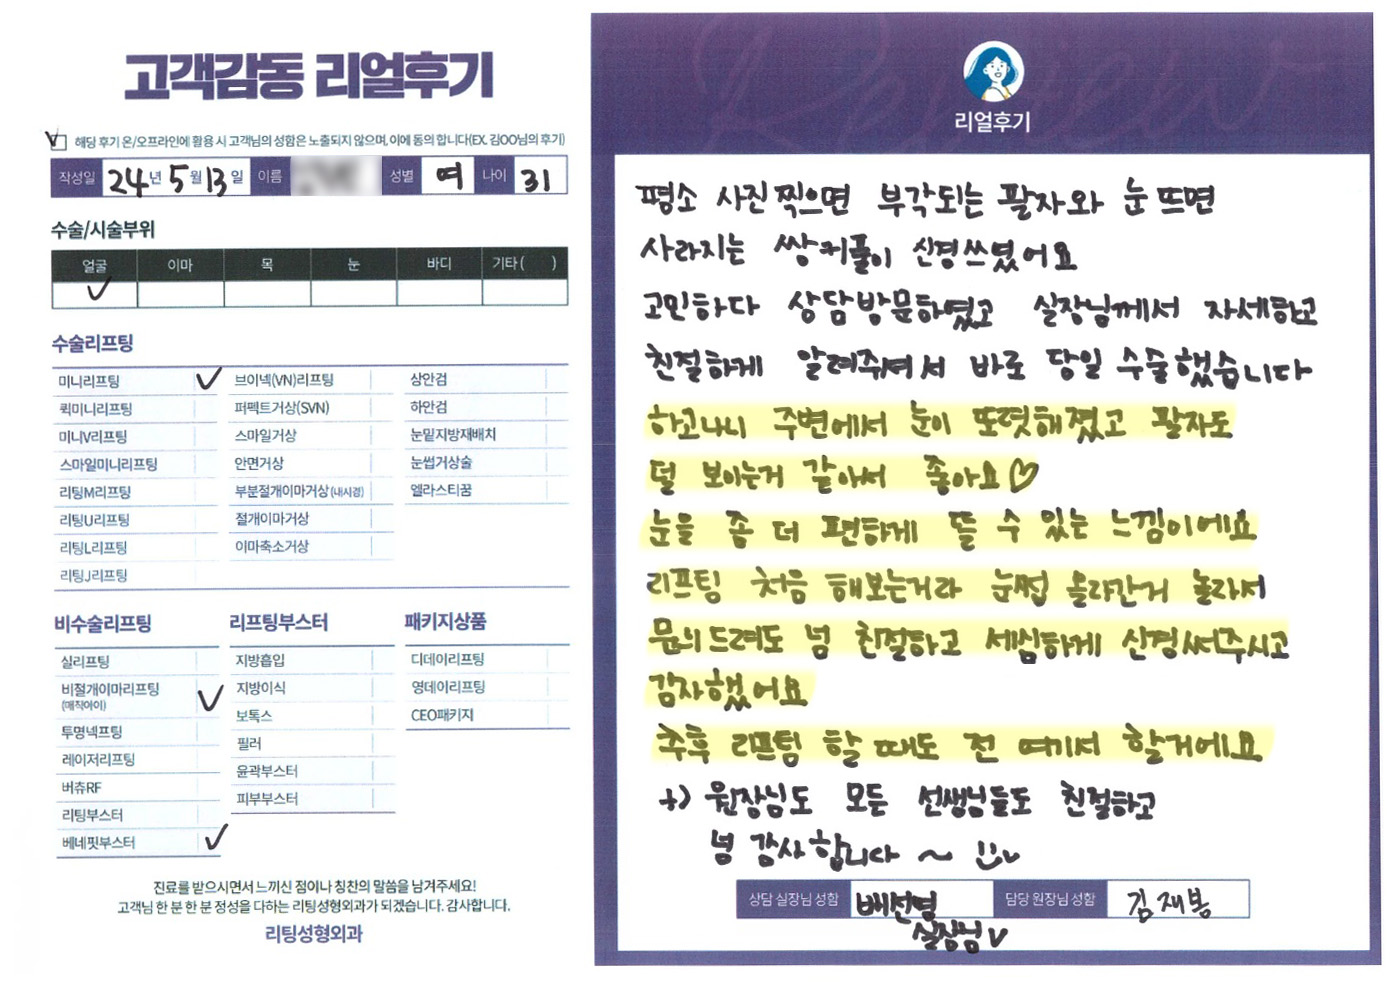 고객감동 리얼후기
해당 후기 온/오프라인에 활용 시 고객님의 성함은 노출되지 않으며, 이에 동의 합니다(EX. 김OO님의 후기)
작성일 24년 5월 13일 이름 성별 여 나이 31
수술/시술부위
얼굴 이마 목 눈 바디 기타 ( )
수술리프팅
미니리프팅 브이넥(VN)리프팅 상안검
퀵미니리프팅 퍼펙트거상(SVN) 하안검
미니V리프팅 스마일거상 눈밑지방재배치
스마일미니리프팅 안면거상 눈썹거상술
리팅M리프팅 부분절개이마거상 (내시경) 엘라스티꿈
리팅U리프팅 절개이마거상
리팅L리프팅 이마축소거상
리팅J리프팅
비수술리프팅 리프팅부스터 패키지상품
실리프팅 지방흡입 디데이리프팅
비절개이마리프팅 지방이식 영데이리프팅
(매직아이)
보톡스 CEO패키지
투명넥프팅 필러
레이저리프팅 윤곽부스터
버츄RF 피부부스터
리팅부스터
베네핏부스터
진료를 받으시면서 느끼신 점이나 칭찬의 말씀을 남겨주세요!
고객님 한 분 한 분 정성을 다하는 리팅성형외과가 되겠습니다. 감사합니다.
리팅성형외과
리얼후기
평소 사진찍으면 부각되는 팔자와 눈 뜨면
사라지는 쌍커풀이 신경쓰였어요
고민하다 상담방문하였고 실장님께서 자세하고
친절하게 알려주셔서 바로 당일 수술했습니다
하고나니 주변에서 눈이 또렷해졌고 팔자도
덜 보이는거 같아서 좋아요♡
눈을 좀 더 편하게 뜰 수 있는 느낌이에요
리프팅 처음 해보는거라 눈썹 올라간거 놀라서
문의드려도 넘 친절하고 세심하게 신경써주시고
감사했어요
추후 리프팅 할 때도 전 여기서 할거에요
+) 원장님도 모든 선생님들도 친절하고
넘 감사합니다 ~
상담 실장님 성함 배선영 담당 원장님 성함 김재봉
실장님